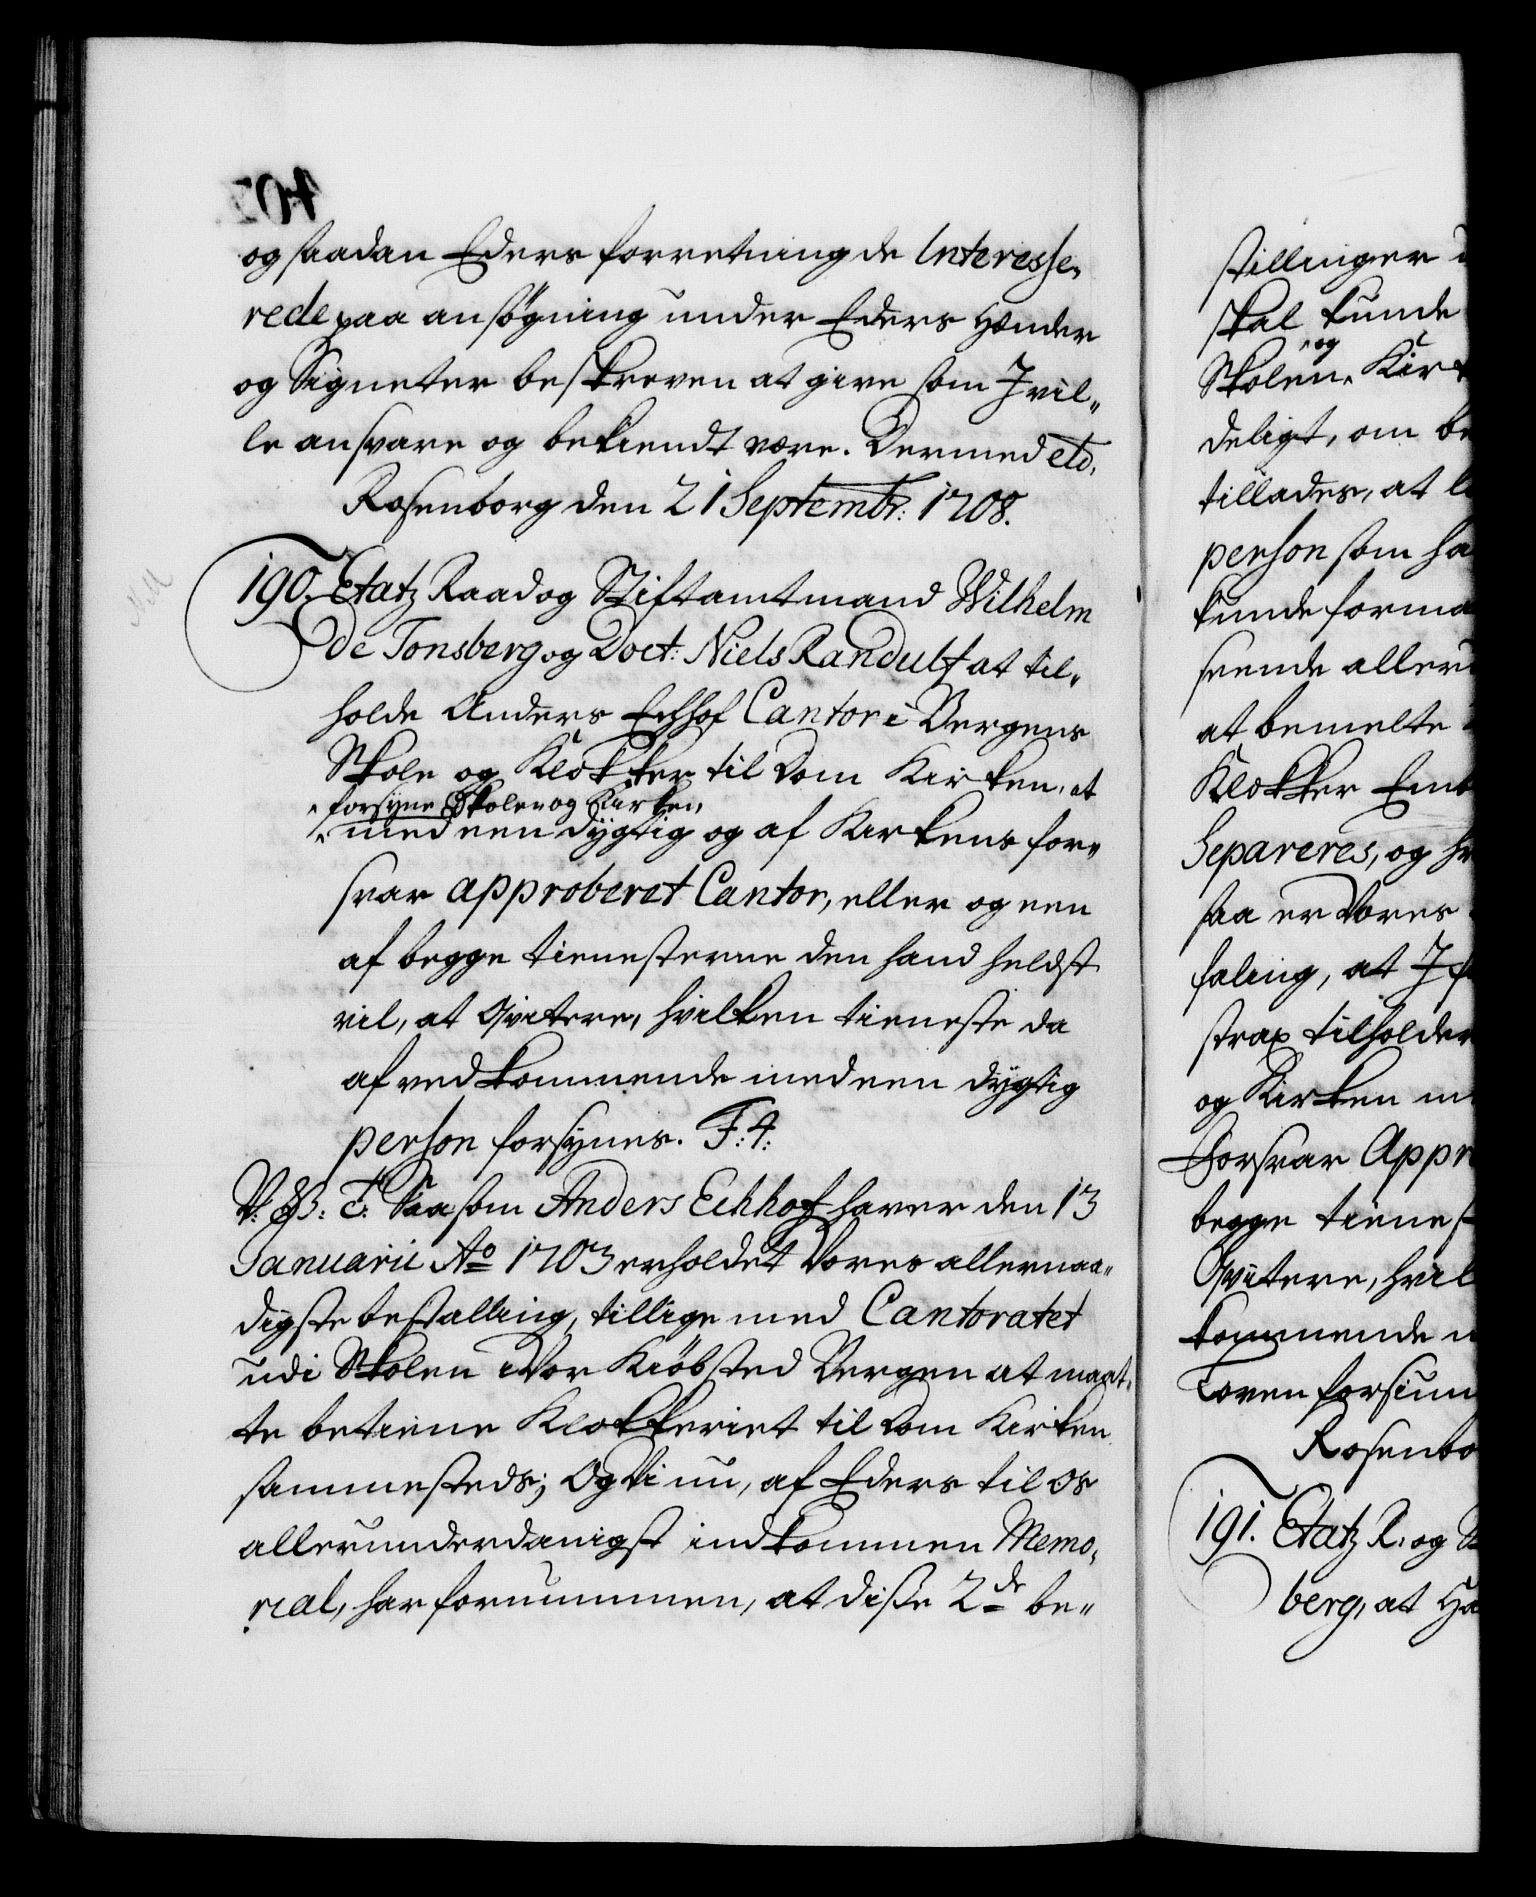 og saadan Eders forretning de Interesse„
rede paa ansøgning under Eders Hænder
og Signeter beskreven at give som I vil„
le ansvare og bekiendt være. Dermed etc.
Rosenborg den 21 Septembr: 1708.
190. Etatz Raad og Stiftamtmand Wilhelm
de Tonsberg og Doct: Niels Randulf at til„
holde Anders Echhof Cantor i Bergens
Skole og Klokker til Dom Kirken, at
forsyne Skolen og Kirken
med een dygtig og af Kirkens for„
svar approberet Cantor, eller og een
af begge tienesterne den hand heldst
vil, at qvitere, hvilken tieneste da
af vedkommende med een dygtig
person forsynes. F: 4:
V: G: T: Saasom Anders Echhof haver den 13
Januarii Ao 1703 erholdet Vores allernaa„
digste bestalling, tillige med Cantoratet
udi Skolen i Vor Kiøbsted Bergen at maat„
te betiene Klokkeriet til Dom Kirken
sammesteds; Og Vi nu, af Eders til os
allerunderdanigst indkommen Memo„
rial, har fornummen, at disse 2de be„
stillinger
skal kunde
og
Skolen Kir
deligt, om be
tillades, at
person som ha
kunde forma
seende aller
at bemelte
Klokker Emb
Separeres, og
saa er Vores
faling, at I
strax tilholder
og Kirken
Forsvar Appr
begge tienes
Qvitere, hvil
kommende
Loven forsiun
Rosenbo
191. Etatz R: og
berg, at Ha